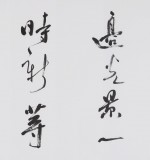 邊光景一
時新等